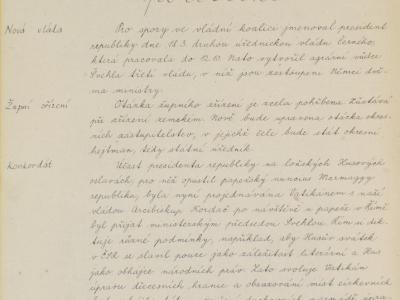 Nová vláda
Pro spory ve vládní koalici jmenoval president
republiky dne 18.3. druhou úřednickou vládu Černého,
která pracovala do 12.10. Nato vytvořil agrární vůdce
Švehla třetí vládu, v níž jsou zastoupeni Němci dvě-
ma ministry.
Župní zřízení
Otázka župního zřízení je zcela pohřbena. Zůstává
při zřízení zemském. Nově bude upravena otázka okres-
ních zastupitelstev, v jejichž čele bude stát okresní
hejtman, tedy státní úředník.
Konkordát
Účast presidenta republiky na loňských Husových
oslavách, pro něž opustil papežský nuncius Marmaggy
republiku, byla nyní projednávána Vatikánem s naší
vládou. Arcibiskup Kordač po návštěvě u papeže v Římě
byl přijat ministerským předsedou Švehlou. Řím si dik-
tuje různé podmínky, například, aby Husův svátek
v ČSR se slavil pouze jako záležitost literární a Hus
jako obhájce národních práv. Zato svoluje Vatikán
úpravu diecesních hranic a obsazování míst církevních